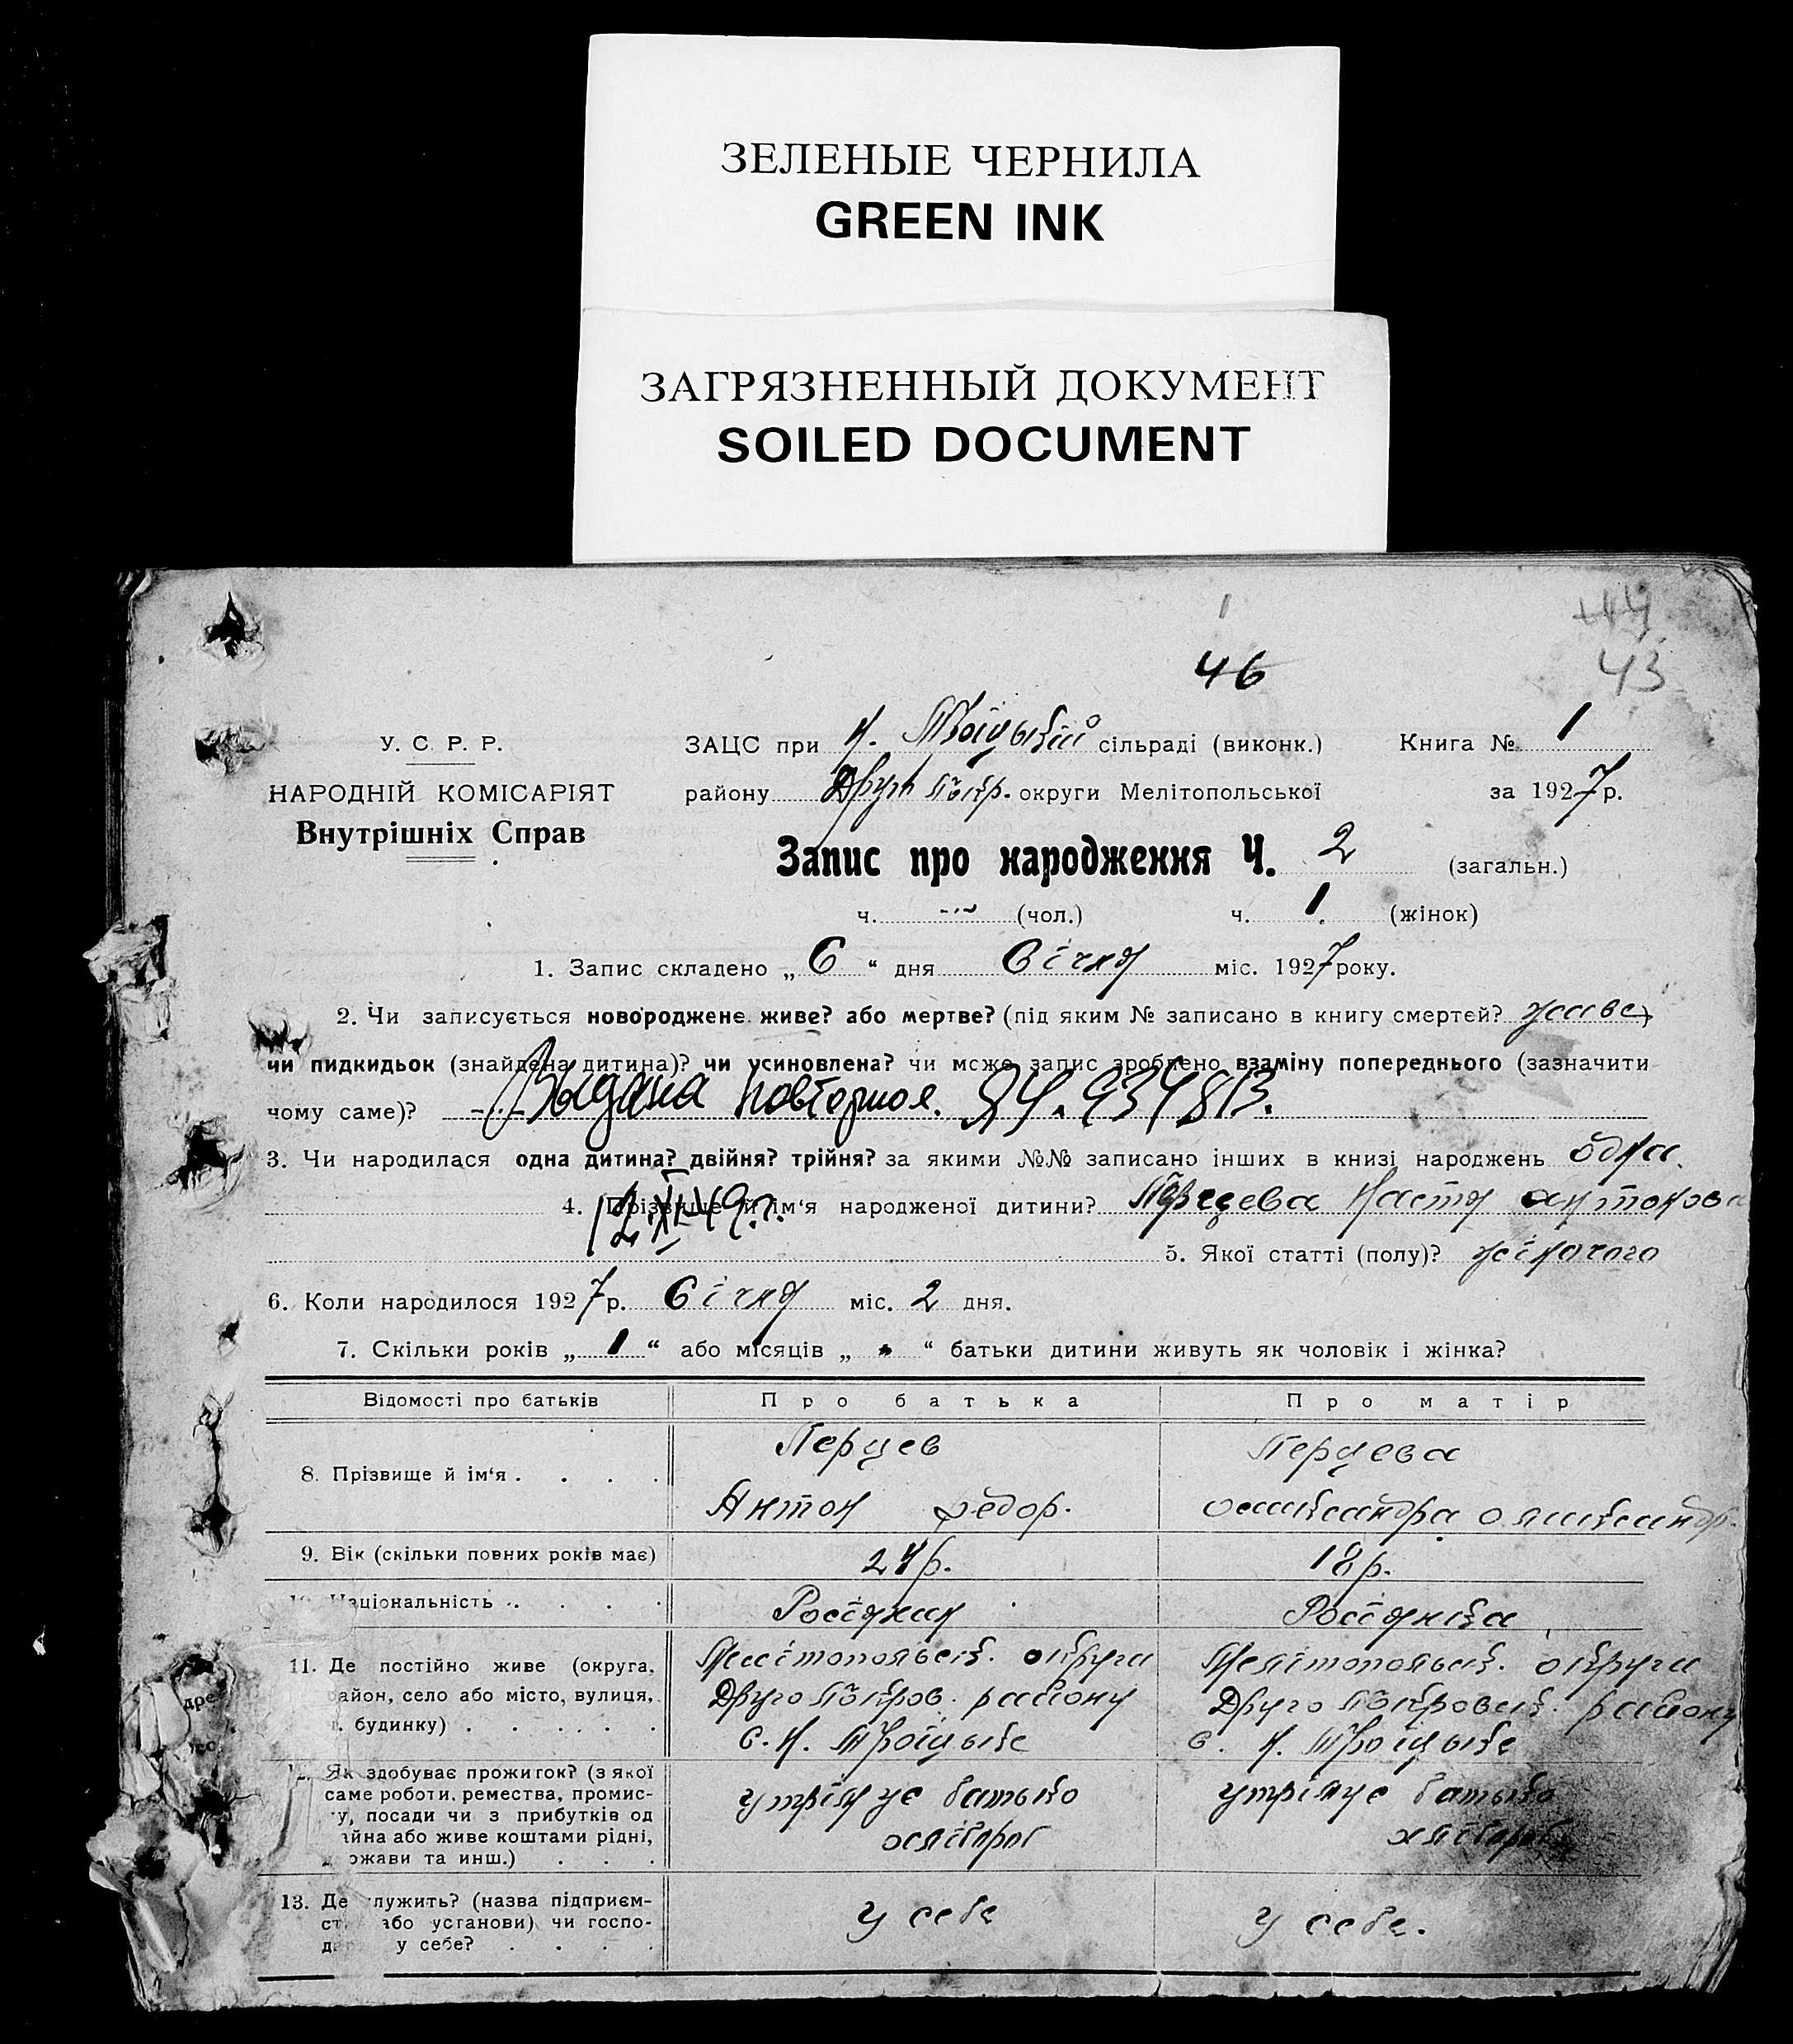 ЗЕЛЕНЫЕ ЧЕРНИЛА
GREEN INK
ЗАГРЯЗНЕННЫЙ ДОКУМЕНТ
SOILED DOCUMENT
44
43
46
У. С. Р. Р.
НАРОДНІЙ КОМІСАРІЯТ
Внутрішніх Справ
ЗАЦС при Н. сільраді (виконк.) Книга № 1
району округи Мелітопольської за 1927 р.
Запис про народження Ч. 2 (загальн.)
ч. (чол.) ч. 1 (жінок)
1. Запис складено „ 6 “ дня Січня міс. 1927 року.
2. Чи записується новороджене живе? або мертве? (під яким № записано в книгу смертей? живе
чи пидкидьок (знайдена дитина)? чи усиновлена? чи може запис зроблено взаміну попереднього (зазначити
чому саме)? Выдана повторное. ЯЧ. 934813.
3. Чи народилася одна дитина? двійня? трійня? за якими №№ записано інших в книзі народжень одна.
12.XI-49 г.
4. Прізвище й ім‘я народженої дитини? Перцева Настя антонова
5. Якої статті (полу)? жіночого
6. Коли народилося 1927 р. Січня міс. 2 дня.
7. Скільки років „ 1 “ або місяців „ “ батьки дитини живуть як чоловік і жінка?
Відомості про батьків Про батька Про матір
8. Прізвище й ім‘я . . . . Перцев Перцева
Антон федор. олександр.
9. Вік (скільки повних років має) 24 р. 18 р.
Національність . . . . Росіянин Росіянка
11. Де постійно живе (округа, Мелітопольськ. округи Мелітопольськ. округи
район, село або місто, вулиця, Друго Покров. району Друго Покровськ. району
будинку) . . . . . с. Н. Троїцьке с. Н. Троїцьке
Як здобуває прожиток? (з якої
саме роботи, ремества, промис-
у, посади чи з прибутків од утрімує батько утрімує батько
айна або живе коштами рідні, хлібороб хлібороб
ржави та инш.) . . .
13. Де служить? (назва підприєм-
ст або установи) чи госпо- у себе у себе.
д у себе? . . . .